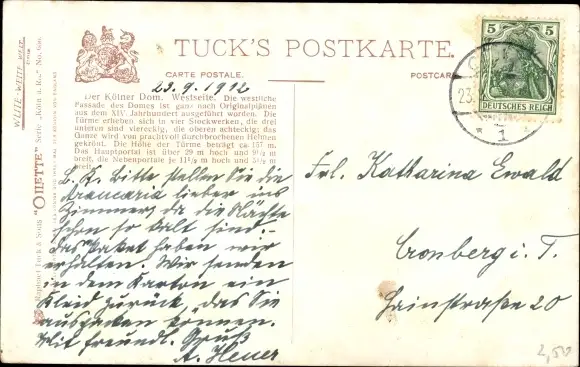 TUCK'S POSTKARTE.
CARTE POSTALE.
POSTCARD
5 5
DEUTSCHES REICH
23.
1
WEITE-WEITE-WELT
Raphael Tuck & Sons "OILETTE" Serie
23.9.1912
Der Kölner Dom. Westseite. Die westliche
Passade des Domes ist ganz nach Originalplänen
aus dem XIV. Jahrhundert ausgeführt worden. Die
Türme erheben sich in vier Stockwerken, die drei
unteren sind viereckig, die oberen achteckig; das
Ganze wird von prachtvoll durchbrochenen Helmen
gekrönt. Die Höhe der Türme beträgt ca. 157 m.
Das Hauptportal ist über 29 m hoch und 9¼ m
breit, die Nebenportale je 11½ m hoch und 5½ m
breit.
L. K. Bitte stellen Sie die
Araucaria lieber ins
Zimmer, da die Nächte
schon so kalt sind.-
das Paket haben wir
erhalten. Wir senden
in dem Karton ein
Kleid zurück, das Sie
auspacken können.
Mit freundl. Gruß
A. Heuer
Frl. Katharina Ewald
Cronberg i. T.
Hainstraße 20
2,50